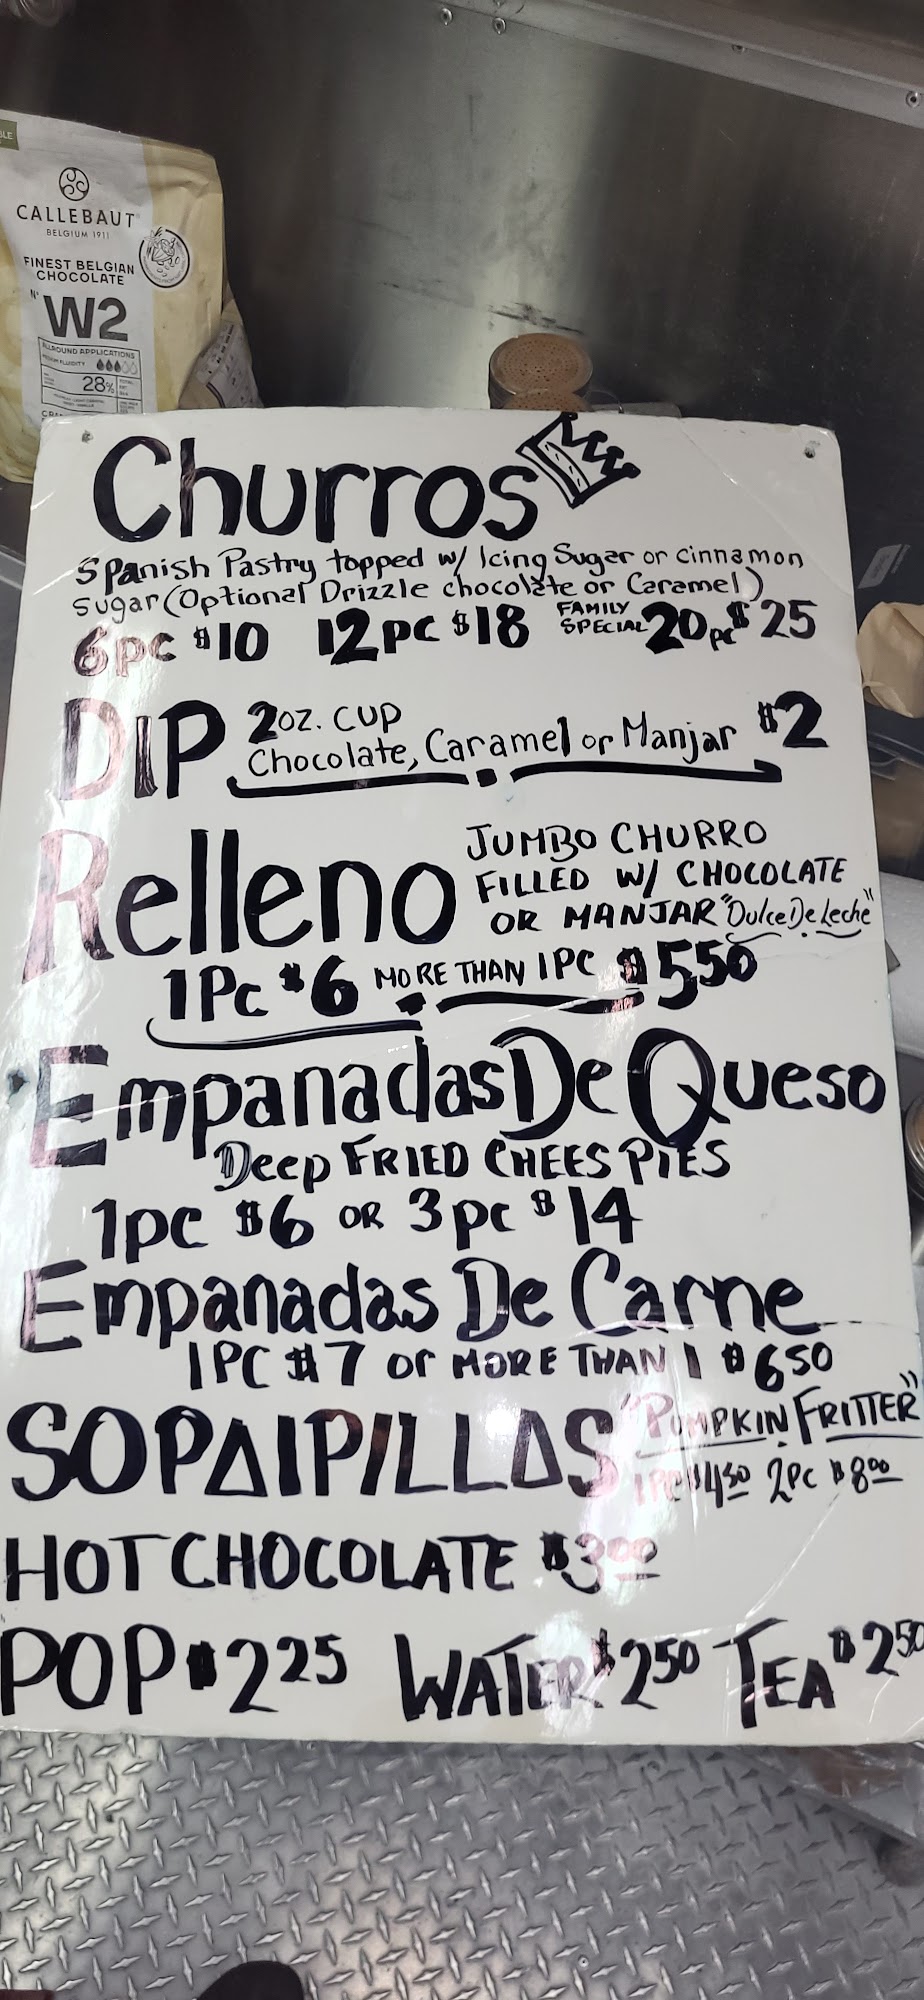 CALLEBAUT
BELGIUM 1911
FINEST BELGIAN
CHOCOLATE
N° W2
ALLROUND APPLICATIONS
MEDIUM FLUIDITY
28%
Churros
Spanish Pastry topped w/ Icing Sugar or cinnamon
sugar (Optional Drizzle chocolate or Caramel)
6pc $10 12pc $18 FAMILY SPECIAL 20pc $25
DIP 2oz. CUP
Chocolate, Caramel or Manjar $2
Relleno JUMBO CHURRO
FILLED W/ CHOCOLATE
OR MANJAR "Dulce De Leche"
1Pc $6 MORE THAN 1PC $550
Empanadas De Queso
Deep FRIED CHEES PIES
1pc $6 OR 3pc $14
Empanadas De Carne
1PC $7 or MORE THAN 1 $650
SOPAIPILLAS "PUMPKIN FRITTER"
1PC $450 2PC $800
HOT CHOCOLATE $300
POP $225 WATER $250 TEA $250